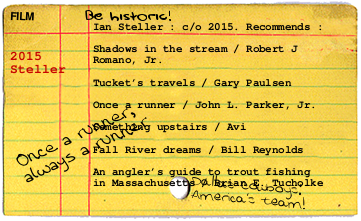 FILM
Be historic!
Ian Steller : c/o 2015. Recommends :
2015
Steller
Shadows in the stream / Robert J
Romano, Jr.
Tucket's travels / Gary Paulsen
Once a runner / John L. Parker, Jr.
Once a runner,
always a runner
Something upstairs / Avi
Fall River dreams / Bill Reynolds
An angler's guide to trout fishing
in Massachusetts / Brian R. Tucholke
Dallas cowboys!
America's team!